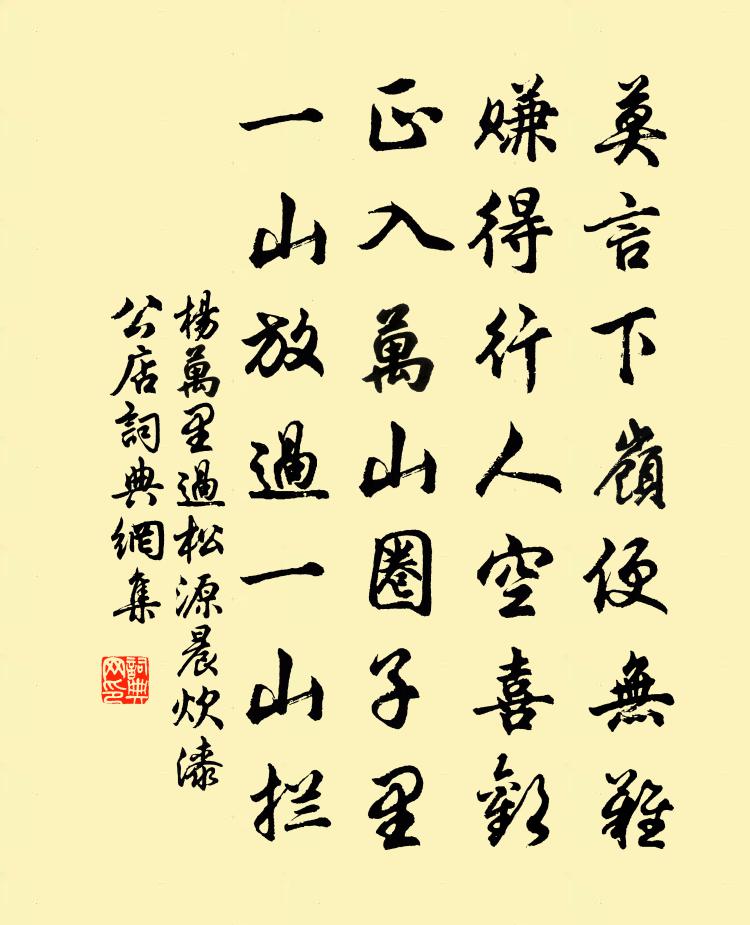 莫言下嶺便無難
賺得行人空喜歡
正入萬山圈子里
一山放過一山拦
楊萬里過松源晨炊漆
公店詞典網集
詞典网印